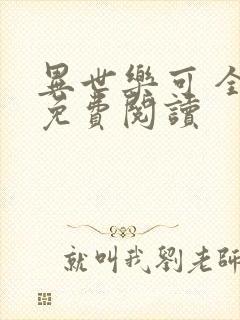 異世樂可 全
免費閱讀
就叫我劉老師